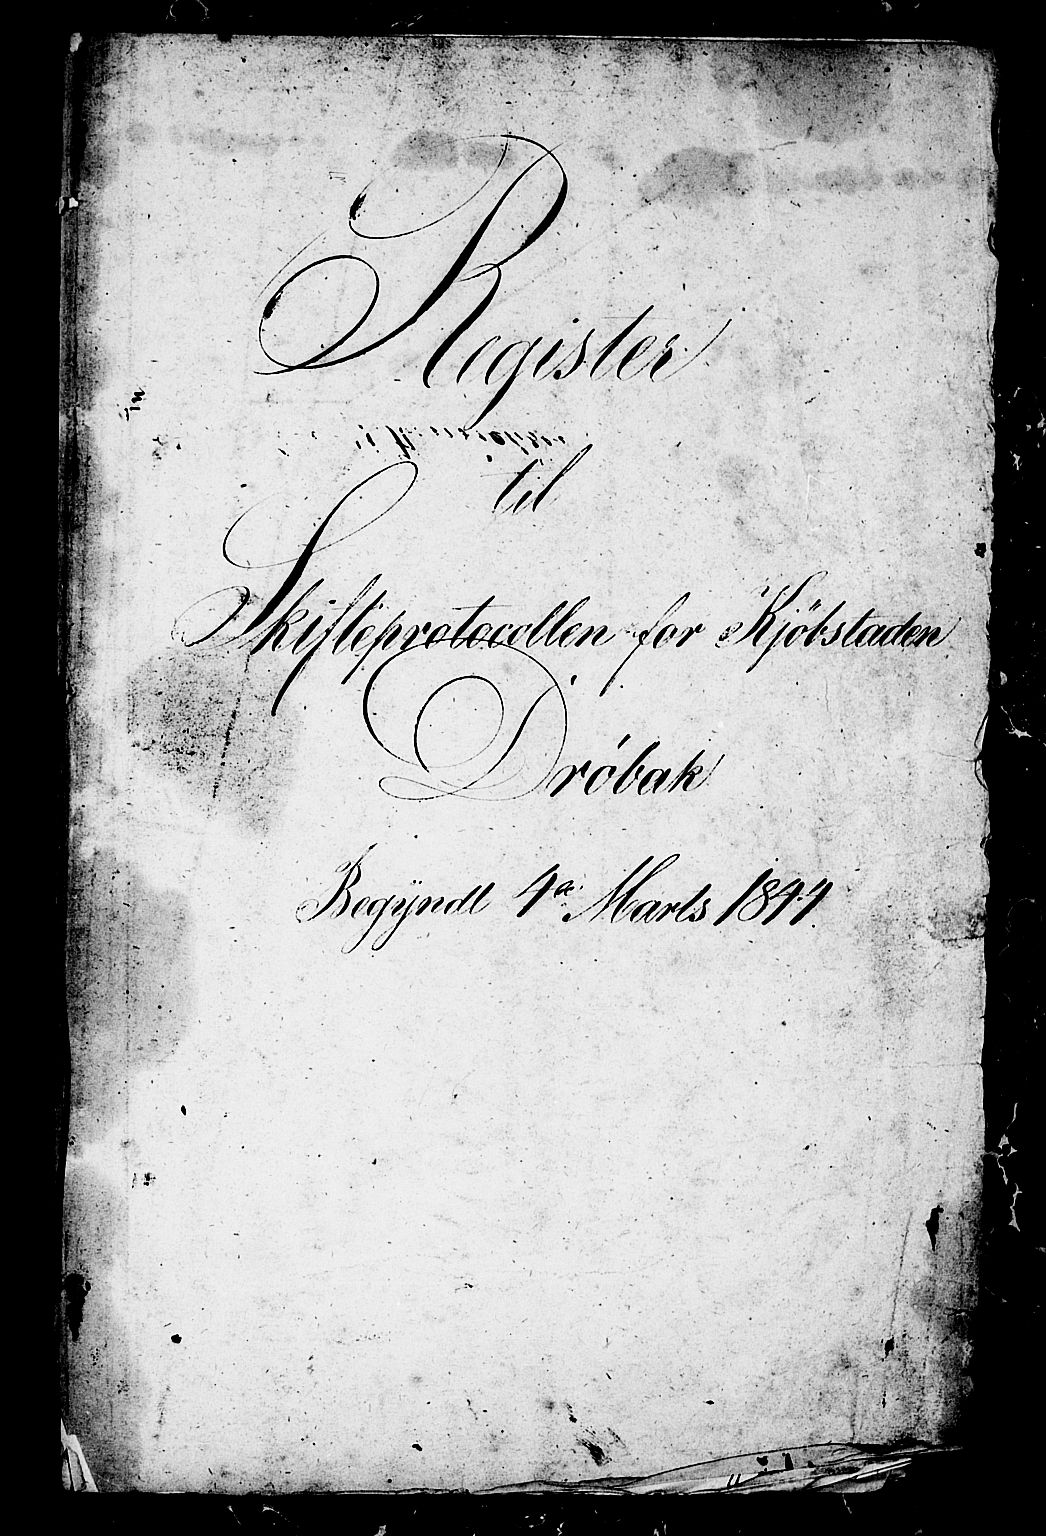 Register
til
Skifteprotocollen for Kjöbstaden
Dróbak
Begÿndt 4de Marts 1844.